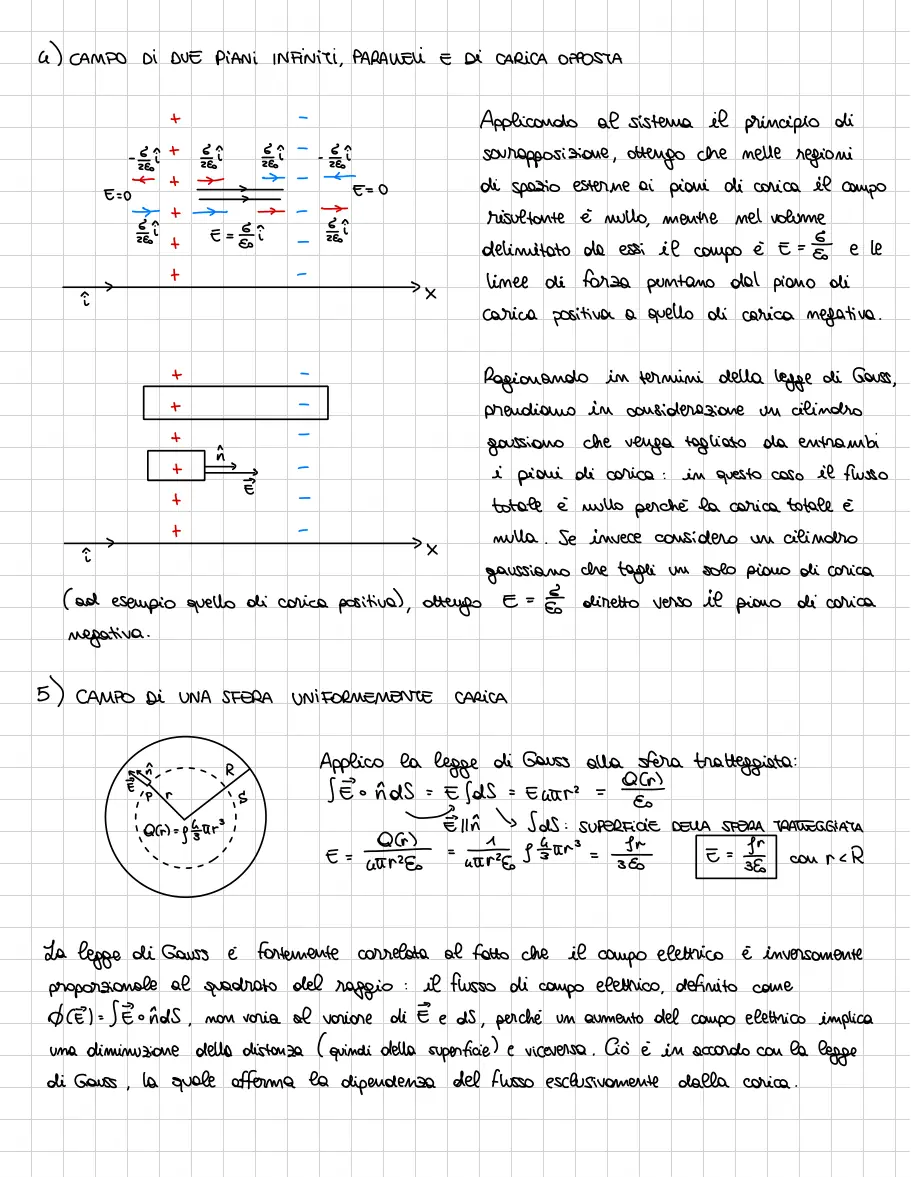 4) CAMPO DI DUE PIANI INFINITI, PARALLELI E DI CARICA OPPOSTA
Applicando al sistema il principio di
sovrapposizione, ottengo che nelle regioni
di spazio esterne ai piani di carica il campo
risultante è nullo, mentre nel volume
delimitato da essi il campo è E = σ/ε₀ e le
linee di forza puntano dal piano di
carica positiva a quello di carica negativa.
+ −
-σ/2ε₀ î + σ/2ε₀ î σ/2ε₀ î − -σ/2ε₀ î
E=0 + − E=0
σ/2ε₀ î + E = σ/ε₀ î − σ/2ε₀ î
+ −
+ −
î x
Ragionando in termini della legge di Gauss,
prendiamo in considerazione un cilindro
gaussiano che venga tagliato da entrambi
i piani di carica: in questo caso il flusso
totale è nullo perché la carica totale è
nulla. Se invece considero un cilindro
gaussiano che tagli un solo piano di carica
+ −
+ −
+ −
+ n̂ −
E⃗
+ −
+ −
î x
(ad esempio quello di carica positiva), ottengo E = σ/ε₀ diretto verso il piano di carica
negativa.
5) CAMPO DI UNA SFERA UNIFORMEMENTE CARICA
E⃗ n̂ P r R S
Q(r) = ρ 4/3 πr³
Applico la legge di Gauss alla sfera tratteggiata:
∫E⃗ ∘ n̂ dS = E∫dS = E4πr² = Q(r)/ε₀
E⃗ ∥ n̂ ∫dS: SUPERFICIE DELLA SFERA TRATTEGGIATA
E = Q(r)/4πr²ε₀ = 1/4πr²ε₀ ρ 4/3 πr³ = ρr/3ε₀ E = ρr/3ε₀ con r<R
La legge di Gauss è fortemente correlata al fatto che il campo elettrico è inversamente
proporzionale al quadrato del raggio: il flusso di campo elettrico, definito come
ϕ(E⃗) = ∫E⃗ ∘ n̂ dS, non varia al variare di E⃗ e dS, perché un aumento del campo elettrico implica
una diminuzione della distanza (quindi della superficie) e viceversa. Ciò è in accordo con la legge
di Gauss, la quale afferma la dipendenza del flusso esclusivamente dalla carica.